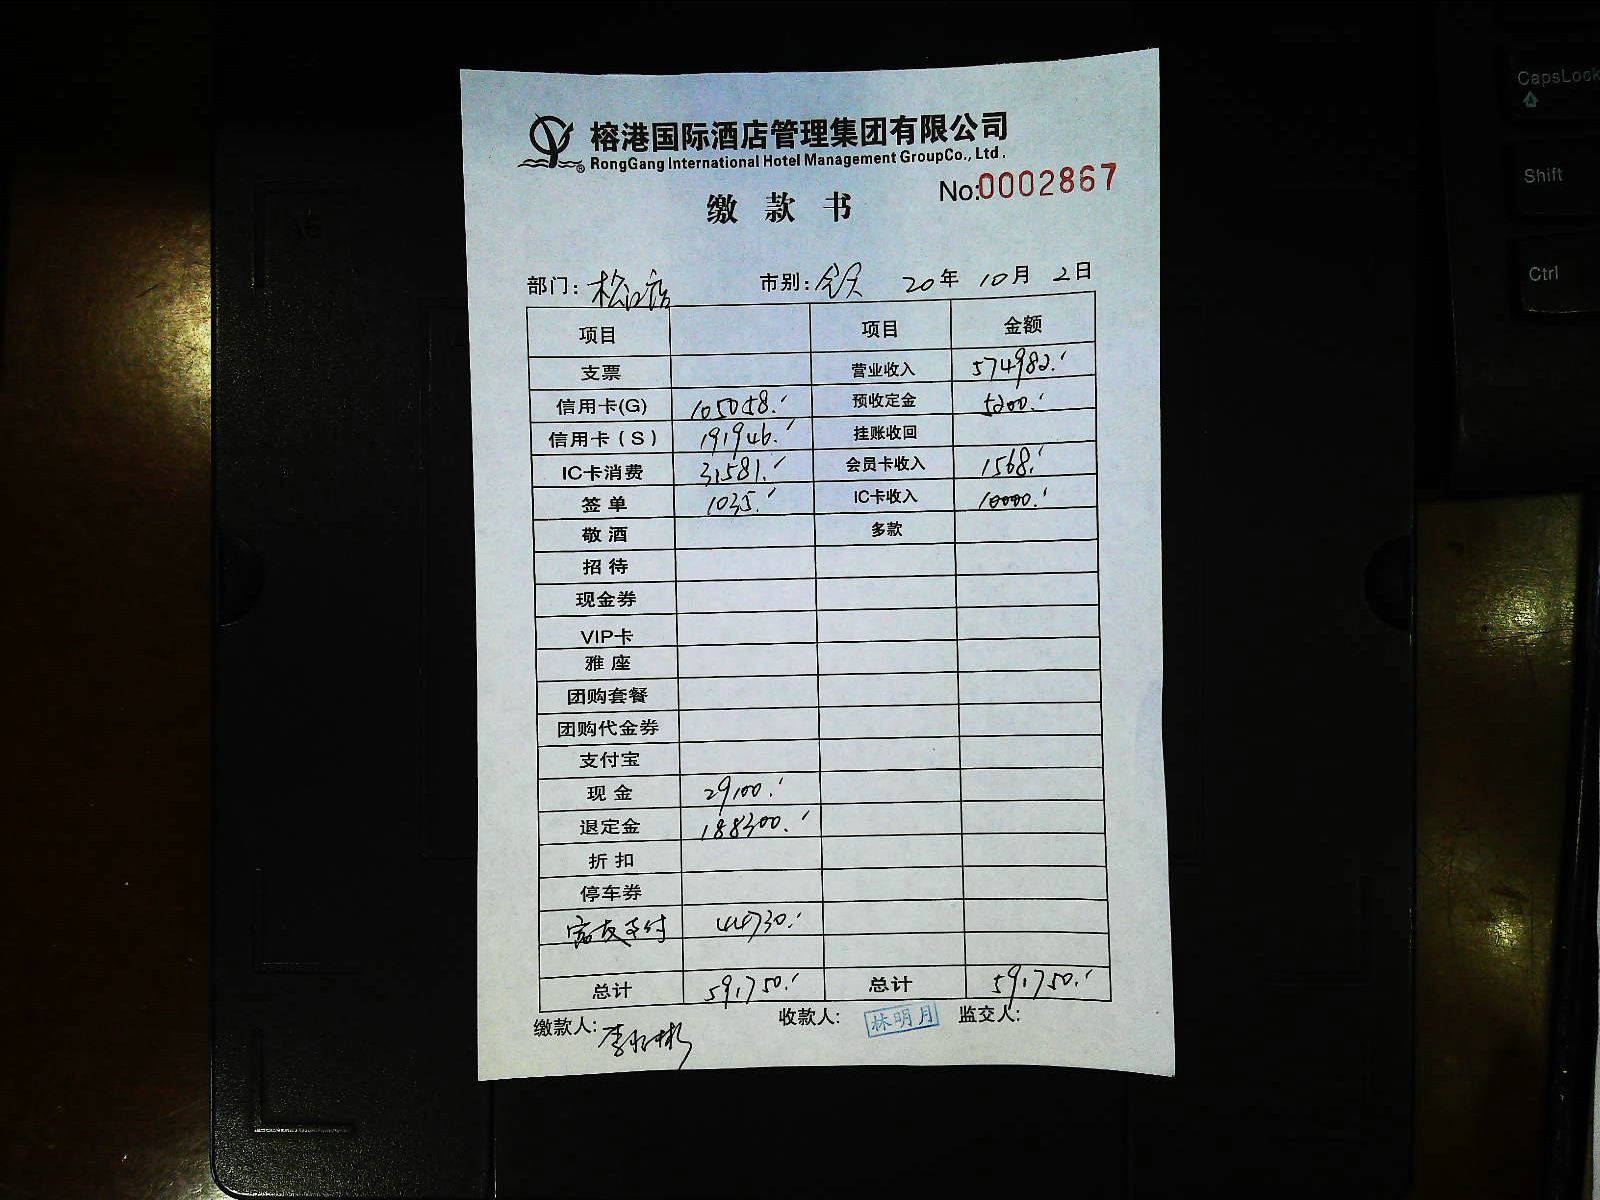 榕港国际酒店管理集团有限公司
RongGang International Hotel Management GroupCo., Ltd.
缴款书
No:0002867
部门: 松江店 市别: 全天 20年 10月 2日
项目 项目 金额
支票 营业收入 574982.
信用卡(G) 105058. 预收定金 5200.
信用卡(S) 191946. 挂账收回
IC卡消费 31581. 会员卡收入 1568.
签单 1035. IC卡收入 10000.
敬酒 多款
招待
现金券
VIP卡
雅座
团购套餐
团购代金券
支付宝
现金 29100.
退定金 188300.
折扣
停车券
支付 44730.
总计 591,750. 总计 591,750.
缴款人: 李 彬 收款人: 林明月 监交人:
CapsLock
Shift
Ctrl